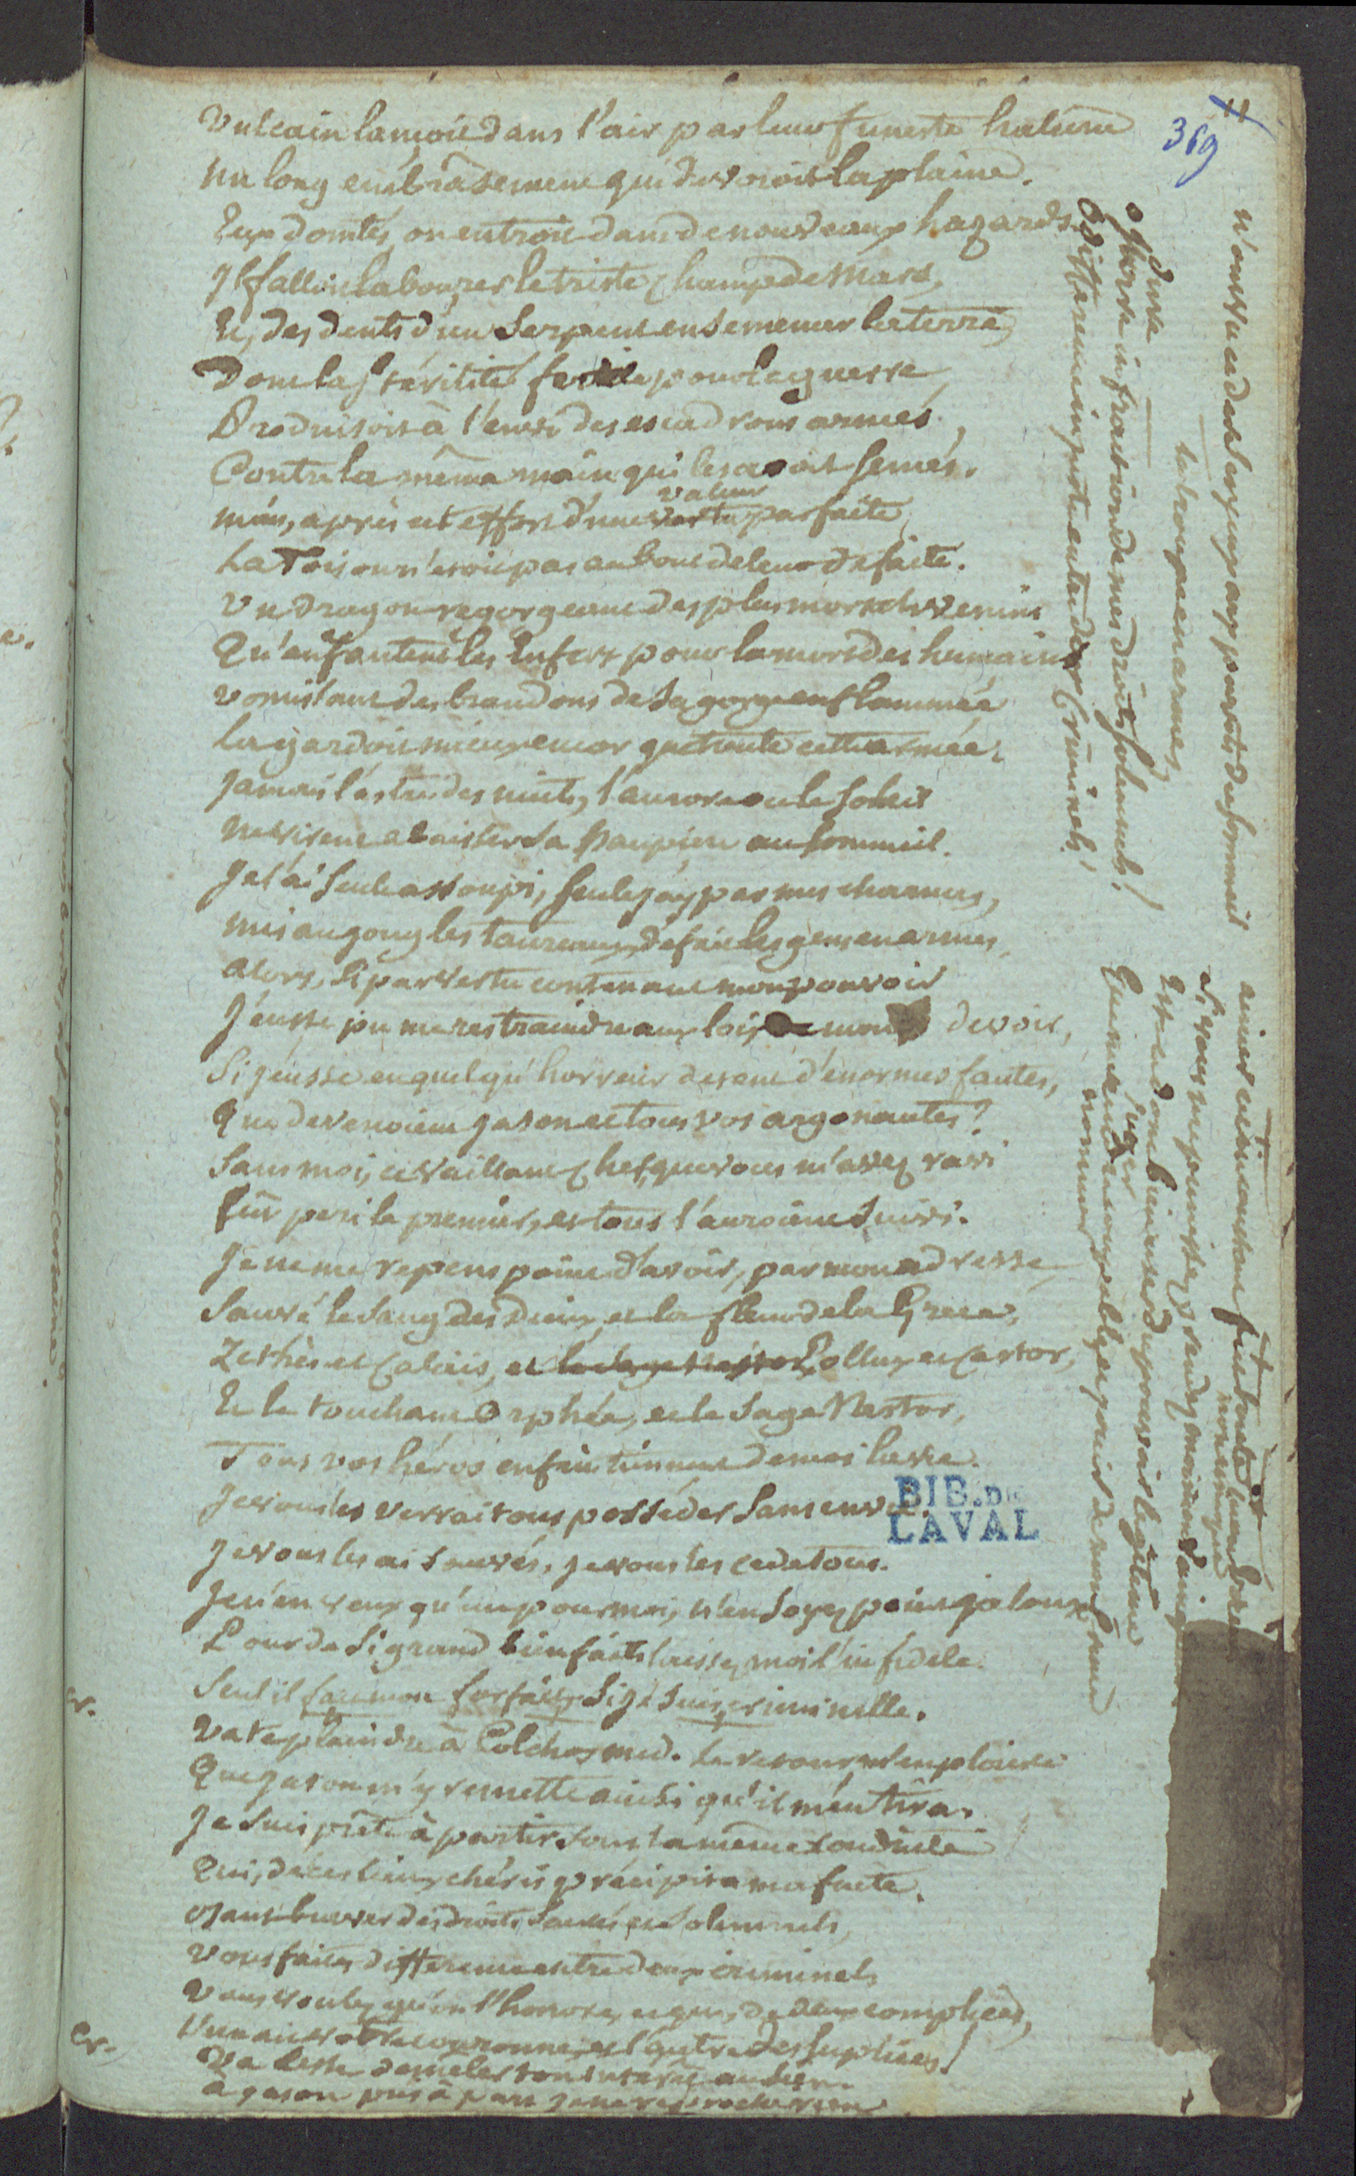 11
369
Vulcain lançoit dans l'air par leur funeste haleine
un long embrâsement qui devoroit la plaine.
Eux domtés, on entroit dans de nouveaux hazards.
Il falloit labourer le triste Champ de Mars,
Et, des dents d'un Serpent ensemencer la terre,
Dont la stérilité fertile pour la guerre,
Produisoit à l'envi des escadrons armés,
Contre la même main qui les avoit semés.
mais, après cet effort d'une vertu parfaite
valeur
La Toison n'étoit pas au bout de leur défaite.
Un dragon regorgeant des plus mortels venins
Qu'enfantent les Enfers pour la mort des humains
vomissant des brandons de sa gorge enflammée
la gardoit mieux encor que toute cette armée.
Jamais l'astre des nuits, l'aurore ou le soleil
ne virent abaisser sa paupière au sommeil.
Je l'ai seule assoupi, seule j'ay par mes charmes,
mis au joug les taureaux, défait les gens en armes
Alors, si par vertu contenant mon pouvoir
J'eusse pu me restraindre aux loix de mon devoir,
Si j'eusse en quelqu'horreur devant d'énormes fautes,
Que devenoient Jason et tous vos argonautes?
Sans moi, ce vaillant Chef, que vous m'avez ravi
fût péri le premier, et tous l'auroient suivi.
Je ne me repens point d'avoir, par mon adresse,
Sauvé le sang des Dieux, et la fleur de la Grece,
Zethès et Calaïs, et le sage Nestor Pollux et Castor,
Et le touchant Orphée, et le sage Nestor,
Tous vos héros enfin tiennent de moi la vie.
Je vous les verrai tous posséder sans envie.
BIB. DE
LAVAL
Je vous les ai sauvés, je vous les cede tous.
Je n'en veux qu'un pour moi, n'en soyez point jaloux
Pour de si grands bienfaits laissez moi l'infidele.
Seul il fait mon forfait, si je suis criminelle.
cr. Va te plaindre à Colchos med. Le retour m'en plaira
Que Jason m'y remette ainsi qu'il m'en tira.
Je suis prête à partir sous la même conduite
Qui, de ces lieux chéris précipita ma fuite.
osant braver des droits sacrés et solemnels,
vous faites différence entre deux criminels
Vous voulez qu'on l'honore, et que, de deux complices,
l'un ait votre couronne, et l'autre des suplices!
cr. Va cesse de mêler ton interêt au sien.
à Jason pris à part je ne reproche rien
N'ont vu ses yeux appesantis du sommeil
la troupe en armes,
dure
offense infraction de mes droits solemnels!
O différence injuste entre deux Criminels!
aimer
Si vous me punissez, rendez moi mon sang
Est-ce donc bien user du pouvoir légitime
juger
nommer
Que me rendre coupable, et jouir de mon crime